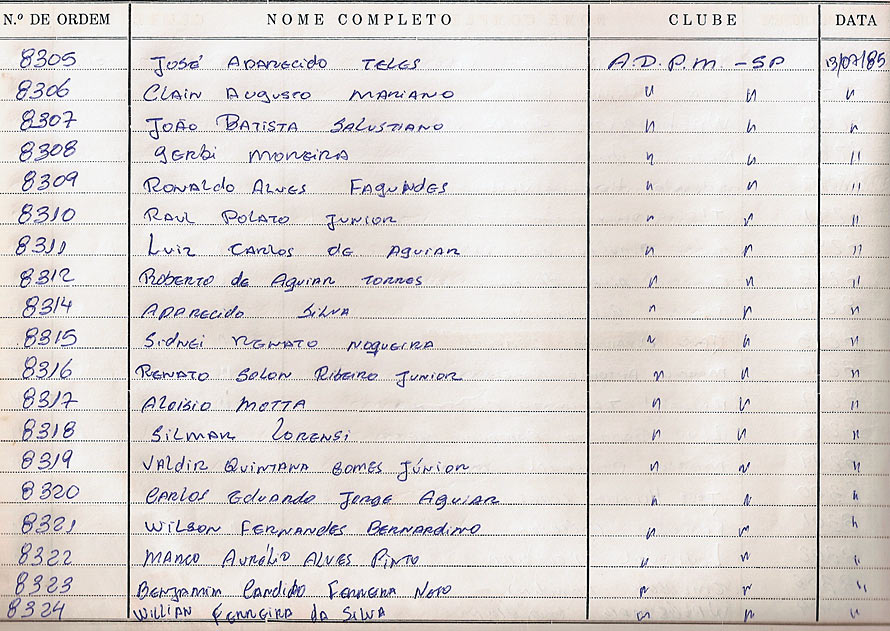 N.º DE ORDEM NOME COMPLETO CLUBE DATA
8305 José Aparecido Teles A.D.P.M - SP 13/07/85
8306 Clain Augusto Mariano " " "
8307 João Batista Salustiano " " "
8308 Gerbi Moreira " " "
8309 Ronaldo Alves Fagundes " " "
8310 Raul Polato Junior " " "
8311 Luiz Carlos de Aguiar " " "
8312 Roberto de Aguiar Torres " " "
8314 Aparecido Silva " " "
8315 Sidnei Renato Nogueira " " "
8316 Renato Solon Ribeiro Junior " " "
8317 Aloisio Motta " " "
8318 Silmar Lorensi " " "
8319 Valdir Quintana Gomes Júnior " " "
8320 Carlos Eduardo Jorge Aguiar " " "
8321 Wilson Fernandes Bernardino " " "
8322 Marco Aurélio Alves Pinto " " "
8323 Benjamim Candido Ferreira Neto " " "
8324 Willian Ferreira da Silva " " "